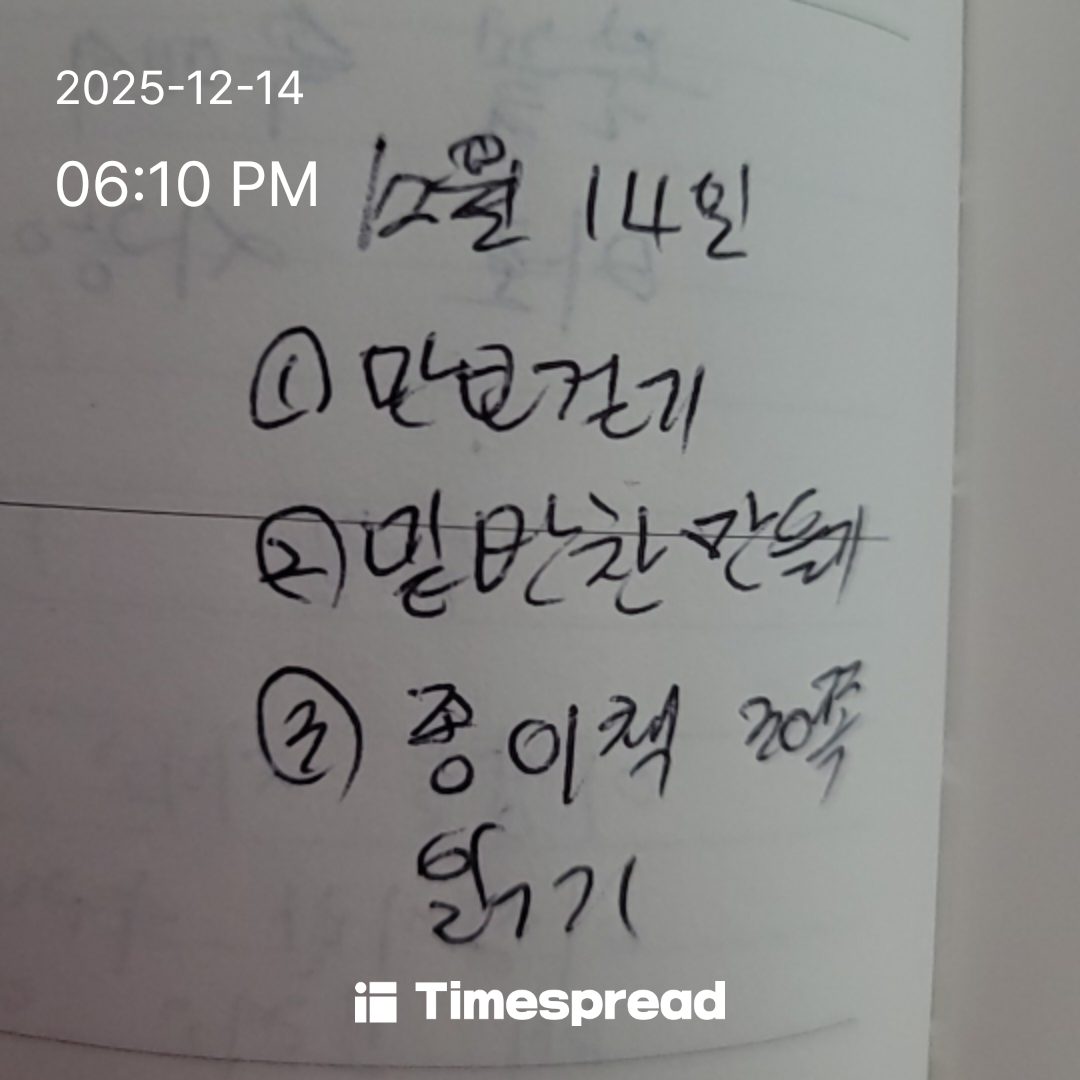 2025-12-14
06:10 PM
12월 14일
①만보걷기
② 밑반찬 만들기
③ 종이책 30쪽
읽기
Timespread